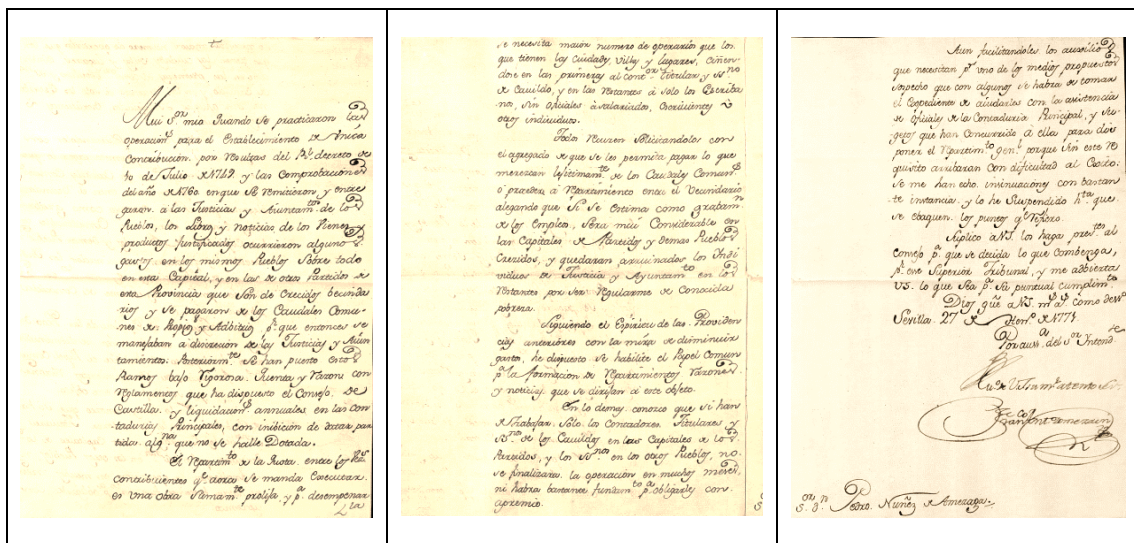 Mui S.or mio Quando se practicaron las
operacion.s para el Establecimiento de Única
Contribucion, por resultas del R.l decreto de
10 de Julio de 1749. y las Comprobaciones
del año de 1760. en que se remitieron, y entre
garon a las Justicias y Aiuntam.tos de los
Pueblos, los Libros y noticias de los Bienes
productos Justificados ocurrieron algunos
gastos en los mismos Pueblos Sobre todo
en esta Capital, y en las de otros Partidos de
esta Provincia que son de Crecidos becinda
rios y se pagaron de los Caudales Comu-
nes de Propios y Adbitrios p.r que entonces se
manejaban a discrecion de las Justicias y Aiun
tamientos: Posteriorm.te se han puesto estos
Ramos bajo Vigorosa Quenta y Razon con
reglamentos que ha dispuesto el Consejo de
Castilla y liquidacion.s annuales en las con
tadurias Principales, con inibicion de datar par
tida alg.na que no se halle Dotada.
El repartim.to de la Quota entre los
contribuientes q.e aora se manda Executar
es Una obra Sumam.te prolija y p.a desempeñar
se necesita maior numero de operarios que los
que tienen las Ciudades, Villas y lugares, Ciñen-
dose en las primeras al cont.or titular y ss.no
de Cauildo, y en las restantes à solo los Escriba
nos, sin oficiales asalariados, Escriuientes ù
otros individuos.
Todos recurren Solicitandolos con
el agregado de que se les permita pagar lo que
merezcan lexitimam.te de los Caudales Comun.s
ò proceder à repartimiento entre el Vecindario
alegando que si se Estima como gratam.n
de los Empleos, sera mui Considerable en
las Capitales de Partidos y Demas Pueblos
Crecidos, y quedaran arruinados los Indi
viduos de Justicia y Ayuntam.to en los
restantes por ser regularm.te de Conocida
pobreza.
Siguiendo el Espiritu de las Providen
cias anteriores con la mira de disminuir
gastos, he dispuesto se habilite el Papel Comun
p.a la formacion de repartimientos Razones
y noticias que se dirijan a este objeto.
En lo demas conozco que si han
de trabajar Solo los Contadores Titulares y
ss.nos de los Cauildos en las Capitales de los
Partidos, y los ss.nos en los otros Pueblos, no
se finalizara la operacion en muchos meses,
ni habra bastante fundam.to p.a obligarles con
apremio.
Aun facilitandoles los auxilios
que necesitan p.r uno de los medios propuestos
sospecho que con algunos se habra de tomar
el Expediente de aiudarlos con la asistencia
de oficiales de la Contaduria Principal, y Su-
getos que han Concurrido à ella para dis
poner el repartim.to Gen.l porque sin este re
quisito arribaran Con dificultad al Exsito:
se me han echo insinuaciones con bastan
te instancia, y lo he Suspendido h.ta que
se ebaquen los puntos q.e refiero.
Suplico a V.S. los haga pres.tes al
Consejo p.a que se decida lo que combenga,
p.r ese Superior tribunal, y me adbierta
V.S. lo que sea p.a su puntual cumplim.to
Dios gũe a V.S. m.s a.s como deseo
Sevilla 27 de Hen.o de 1771.
Por aus.a del S.or Intend.te
S.or D.n Pedro Nuñez de Amezaga.